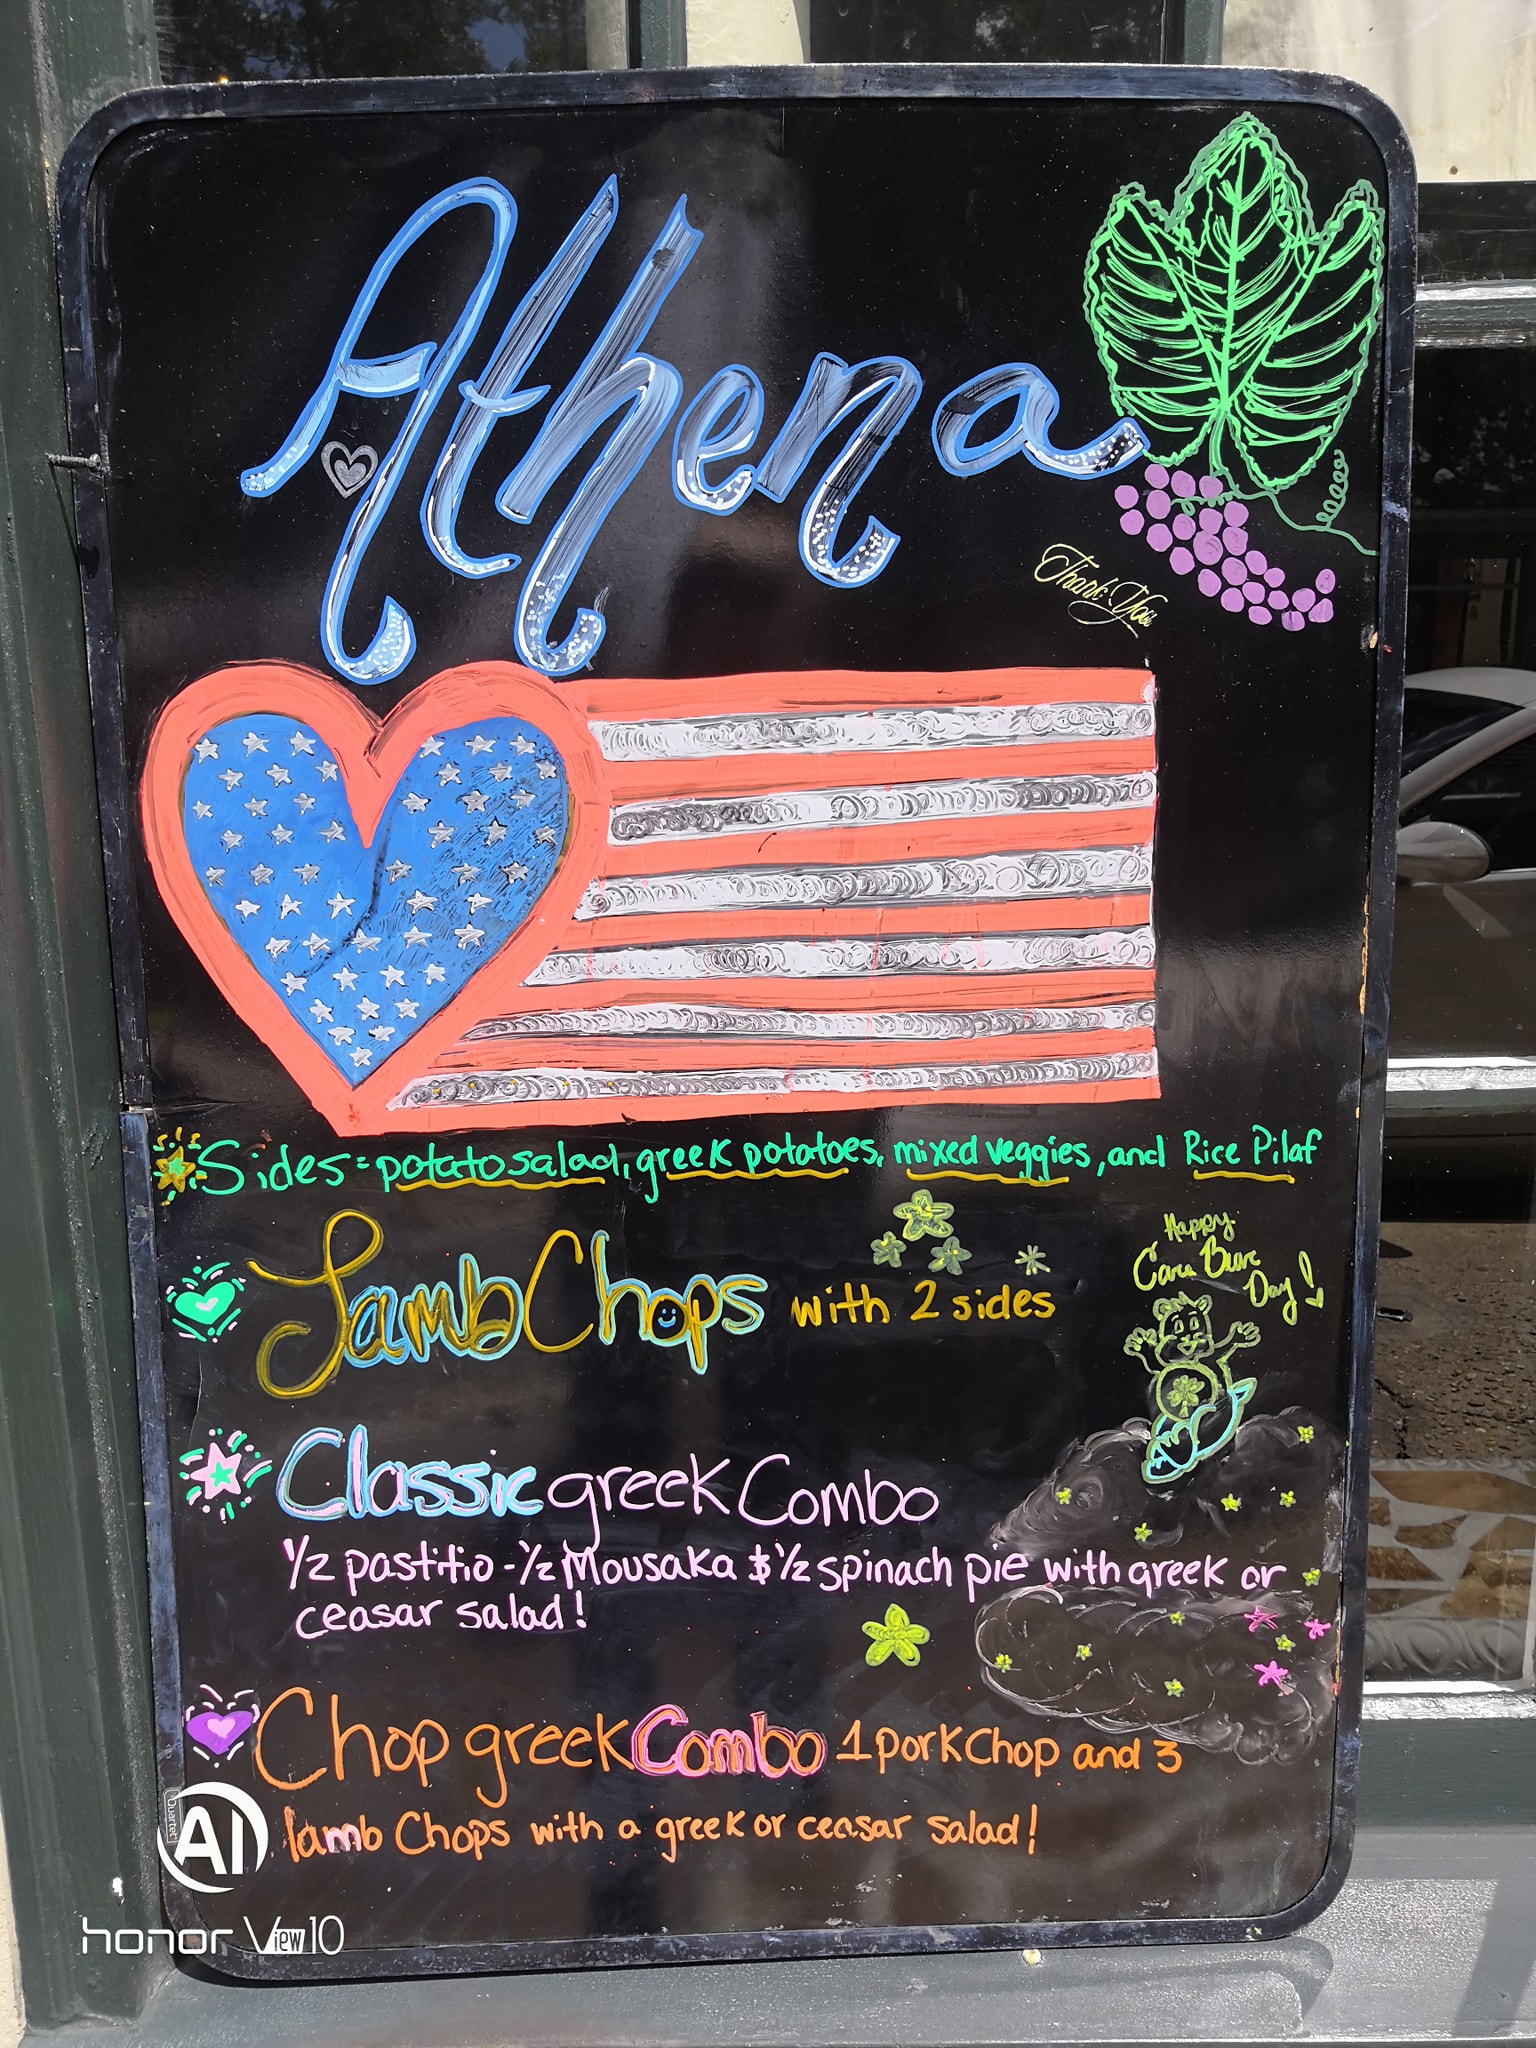 Athena
Thank You
Sides = potato salad, greek potatoes, mixed veggies, and Rice Pilaf
Lamb Chops with 2 sides
Happy
Care Bear
Day!
Classic greek Combo
1/2 pastitio - 1/2 Mousaka $ 1/2 spinach pie with greek or
ceasar salad!
Chop greek Combo 1 pork Chop and 3
lamb Chops with a greek or ceasar salad!
Quartet
AI
honor View10